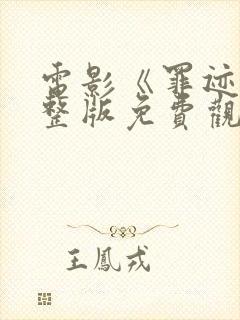 電影《罪迹
整版免費觀
王鳳戎